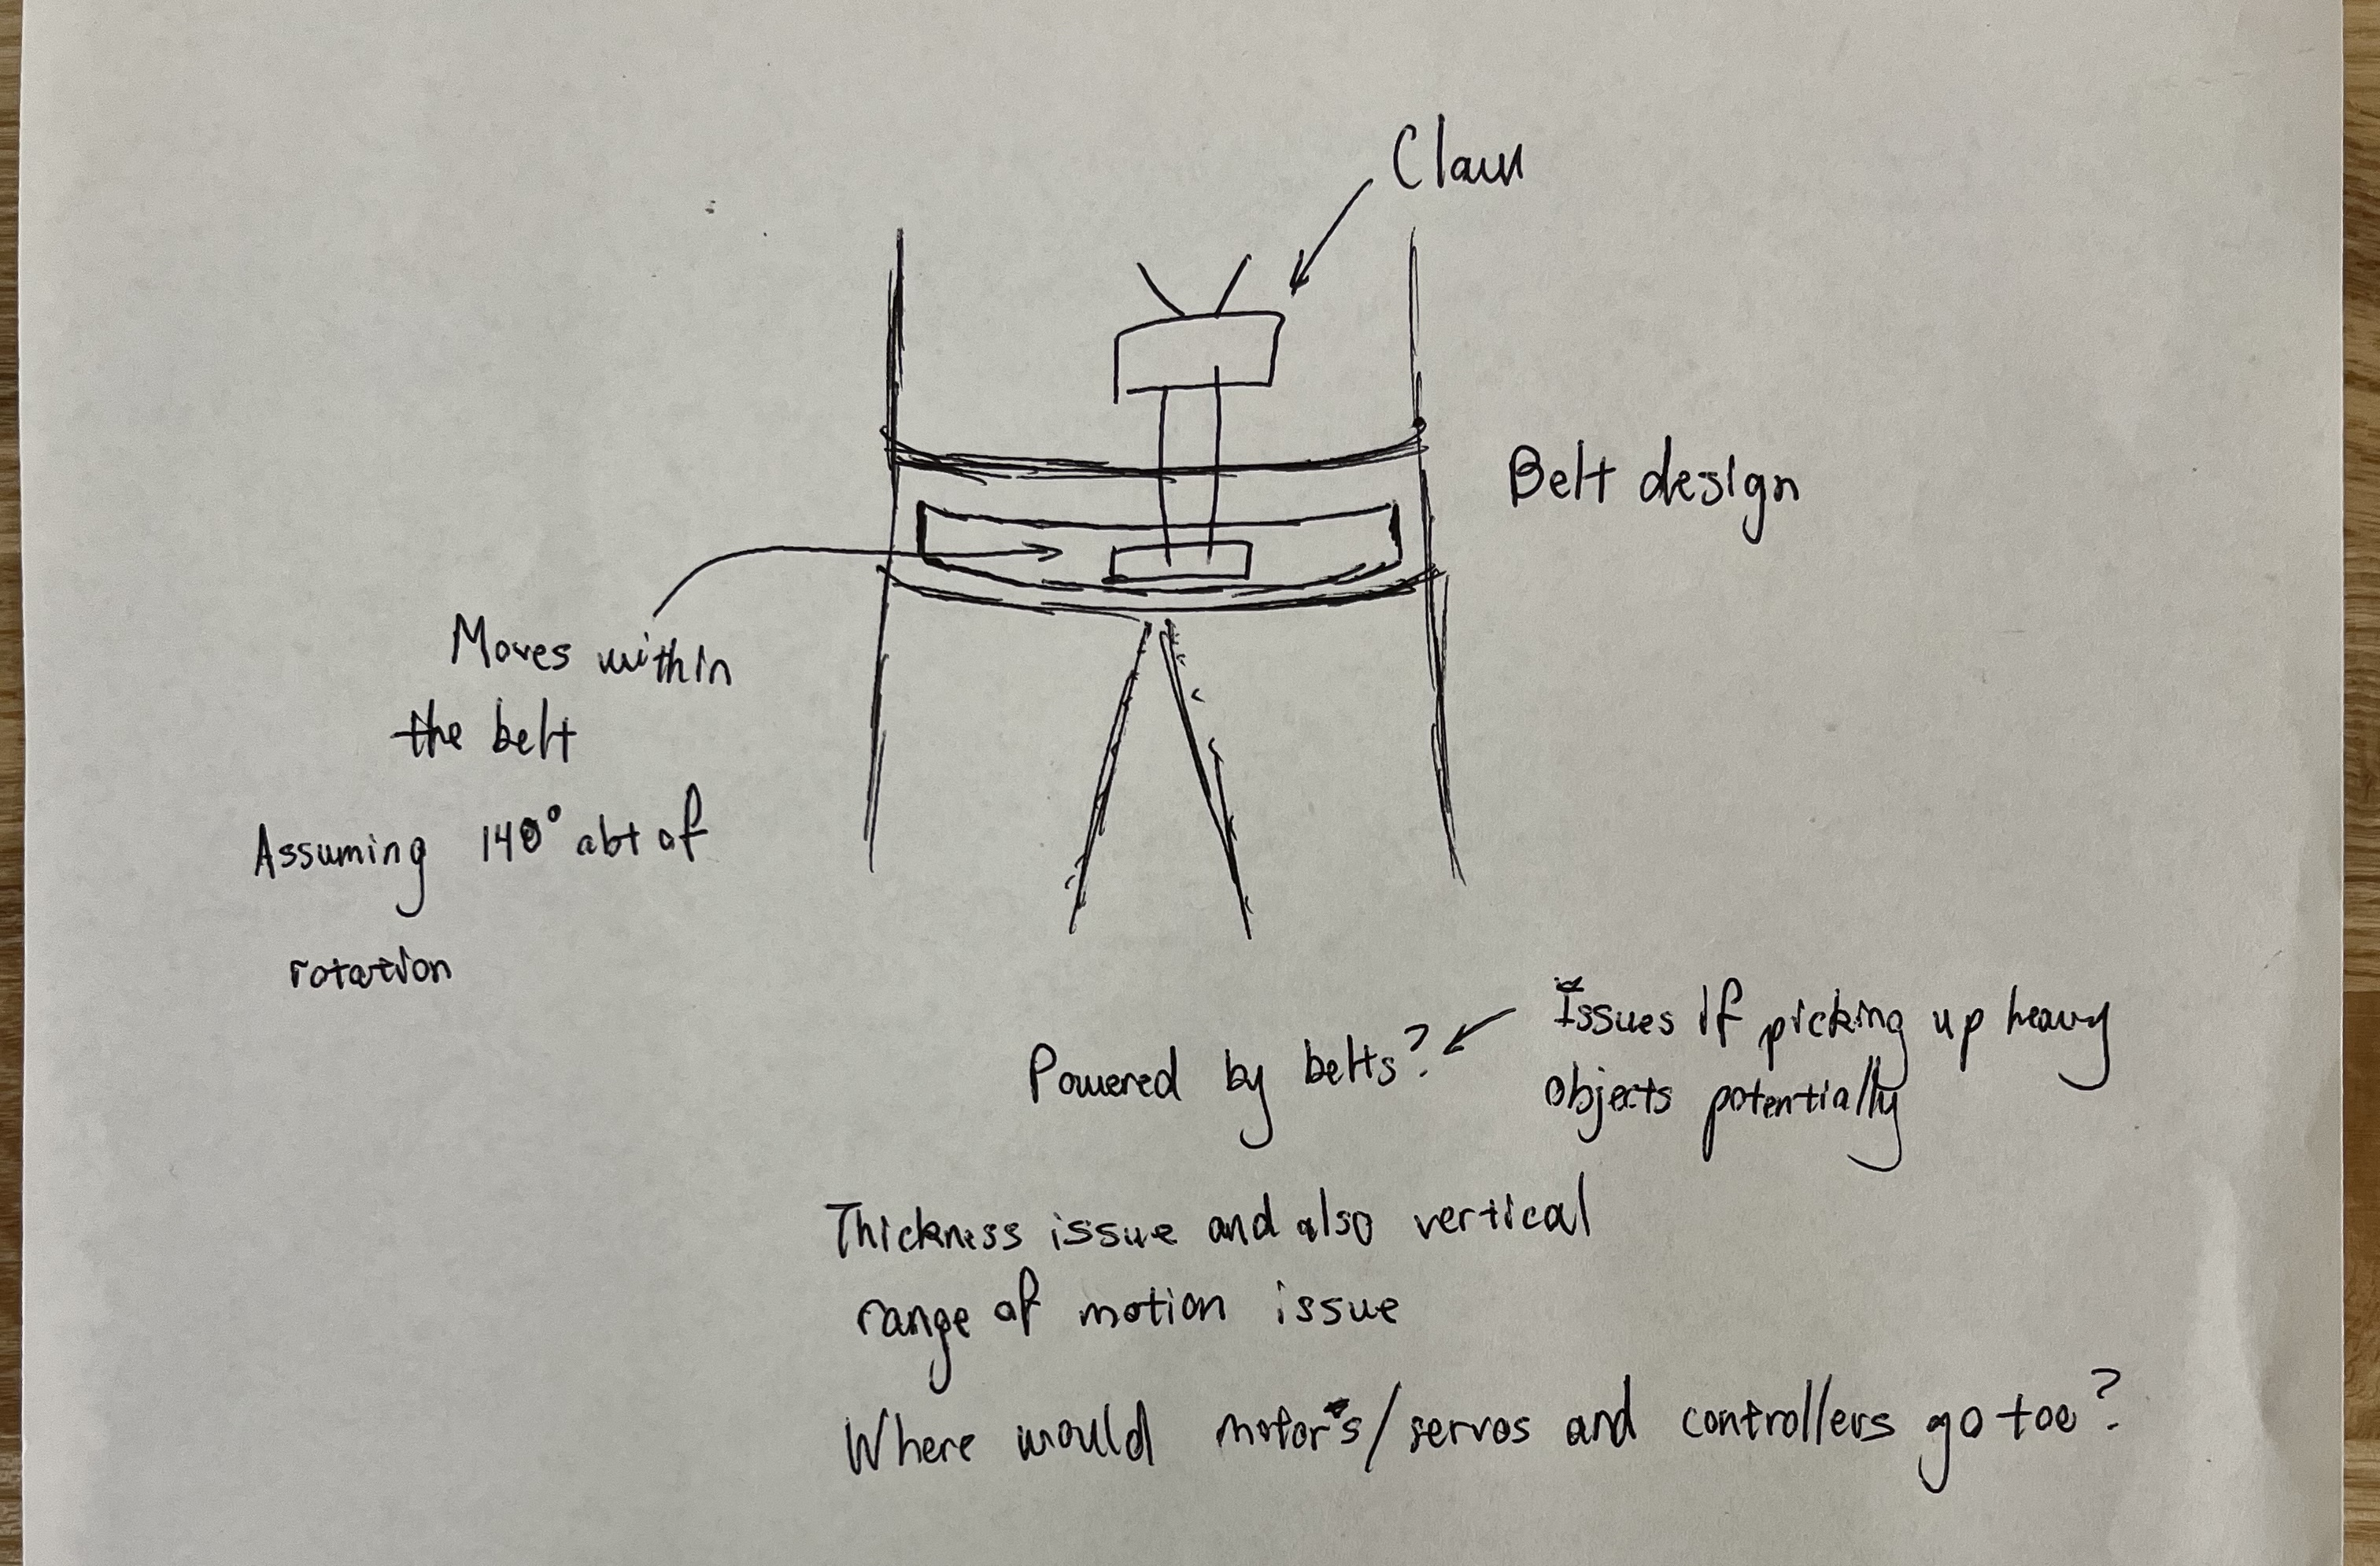 Claw
Belt design
Moves within
the belt
Assuming 140° abt of
rotation
Issues if picking up heavy
Powered by belts?
objects potentially
Thickness issue and also vertical
range of motion issue
Where would motors/servos and controllers go too?